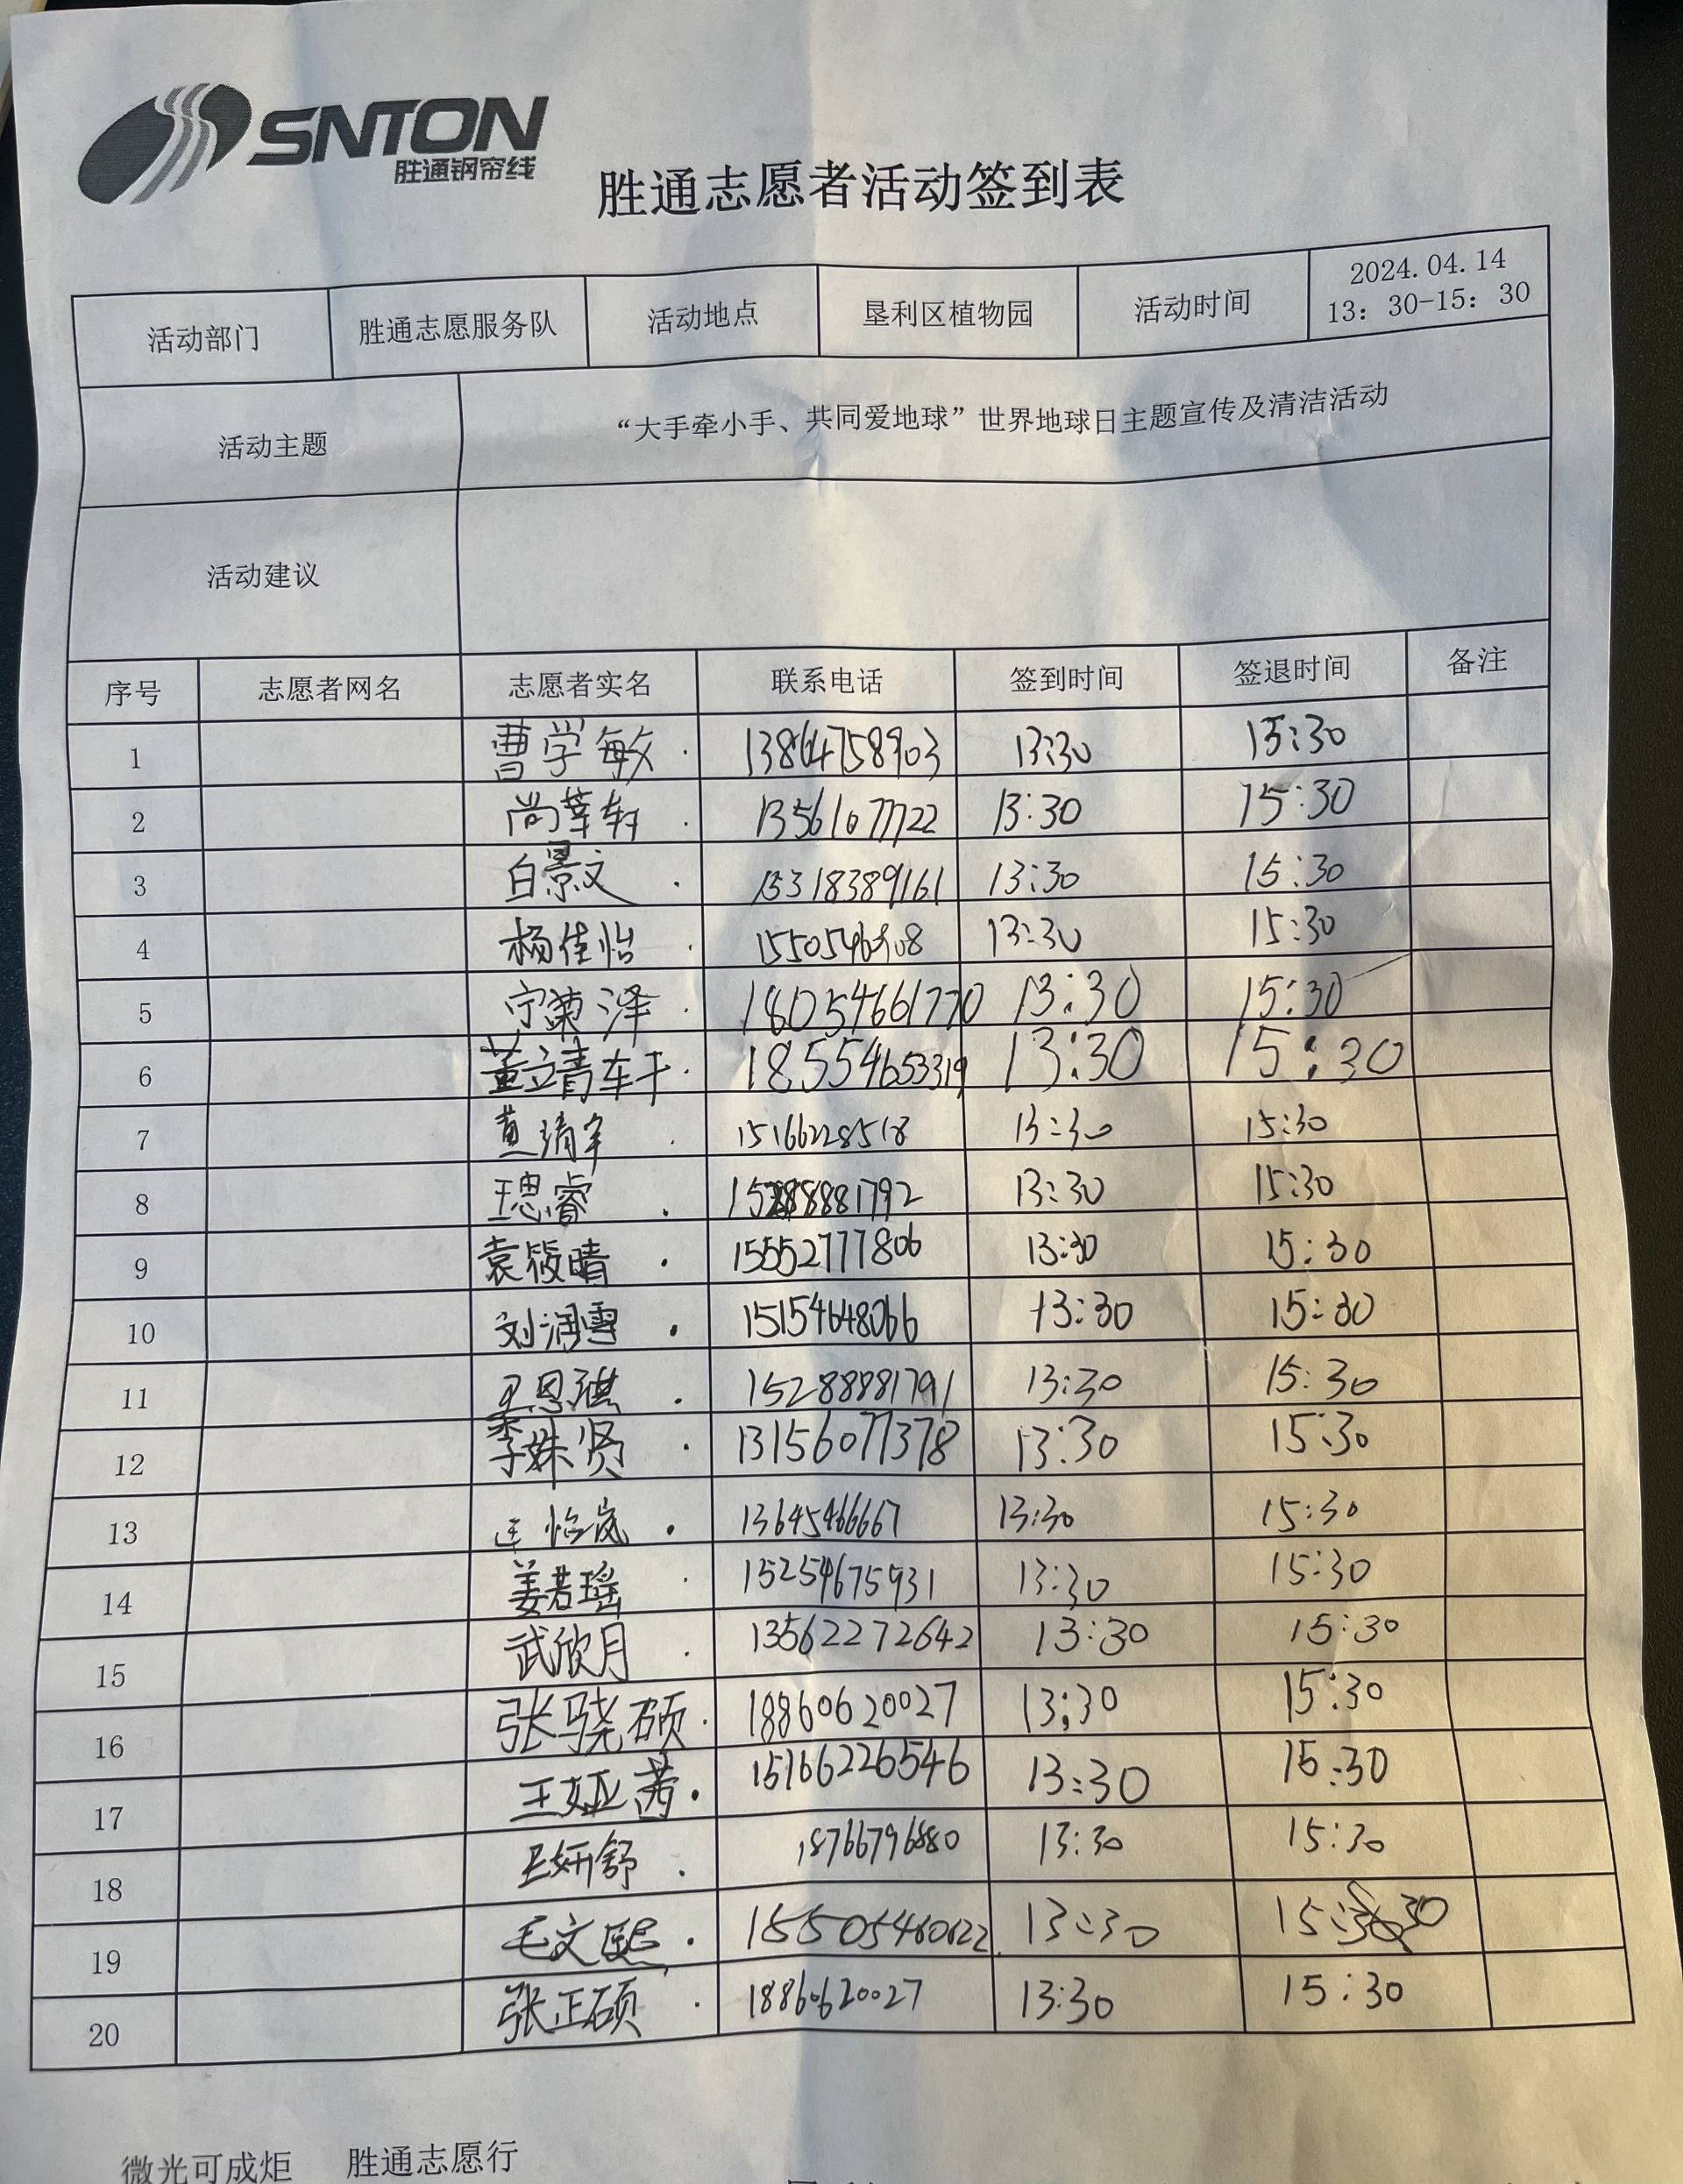 SNTON
胜通钢帘线
胜通志愿者活动签到表
活动部门 胜通志愿服务队 活动地点 垦利区植物园 活动时间 2024.04.14
13：30-15：30
活动主题 “大手牵小手、共同爱地球”世界地球日主题宣传及清洁活动
活动建议
序号 志愿者网名 志愿者实名 联系电话 签到时间 签退时间 备注
1 曹学敏 13864758903 13:30 15:30
2 尚莘轩 13561077722 13:30 15:30
3 白景文 15318389161 13:30 15:30
4 杨佳怡 13:30 15:30
5 宁荣泽 18054661770 13:30 15:30
6 董立青车干 18554653319 13:30 15:30
7 15166228518 13:30 15:30
8 王思睿 15288881792 13:30 15:30
9 袁筱晴 15552777806 13:30 15:30
10 刘润雪 15154648066 13:30 15:30
11 王恩祺 15288881791 13:30 15:30
12 李姝贤 13156077378 13:30 15:30
13 怡岚 13645466667 13:30 15:30
14 姜若瑶 15254675931 13:30 15:30
15 武欣月 13562272642 13:30 15:30
16 张骁硕 18860620027 13:30 15:30
17 王娅茜 15166226546 13:30 15:30
18 王妍舒 18766796880 13:30 15:30
19 毛文熙 15505460622 13:30 15:30
20 张正硕 18860620027 13:30 15:30
微光可成炬 胜通志愿行